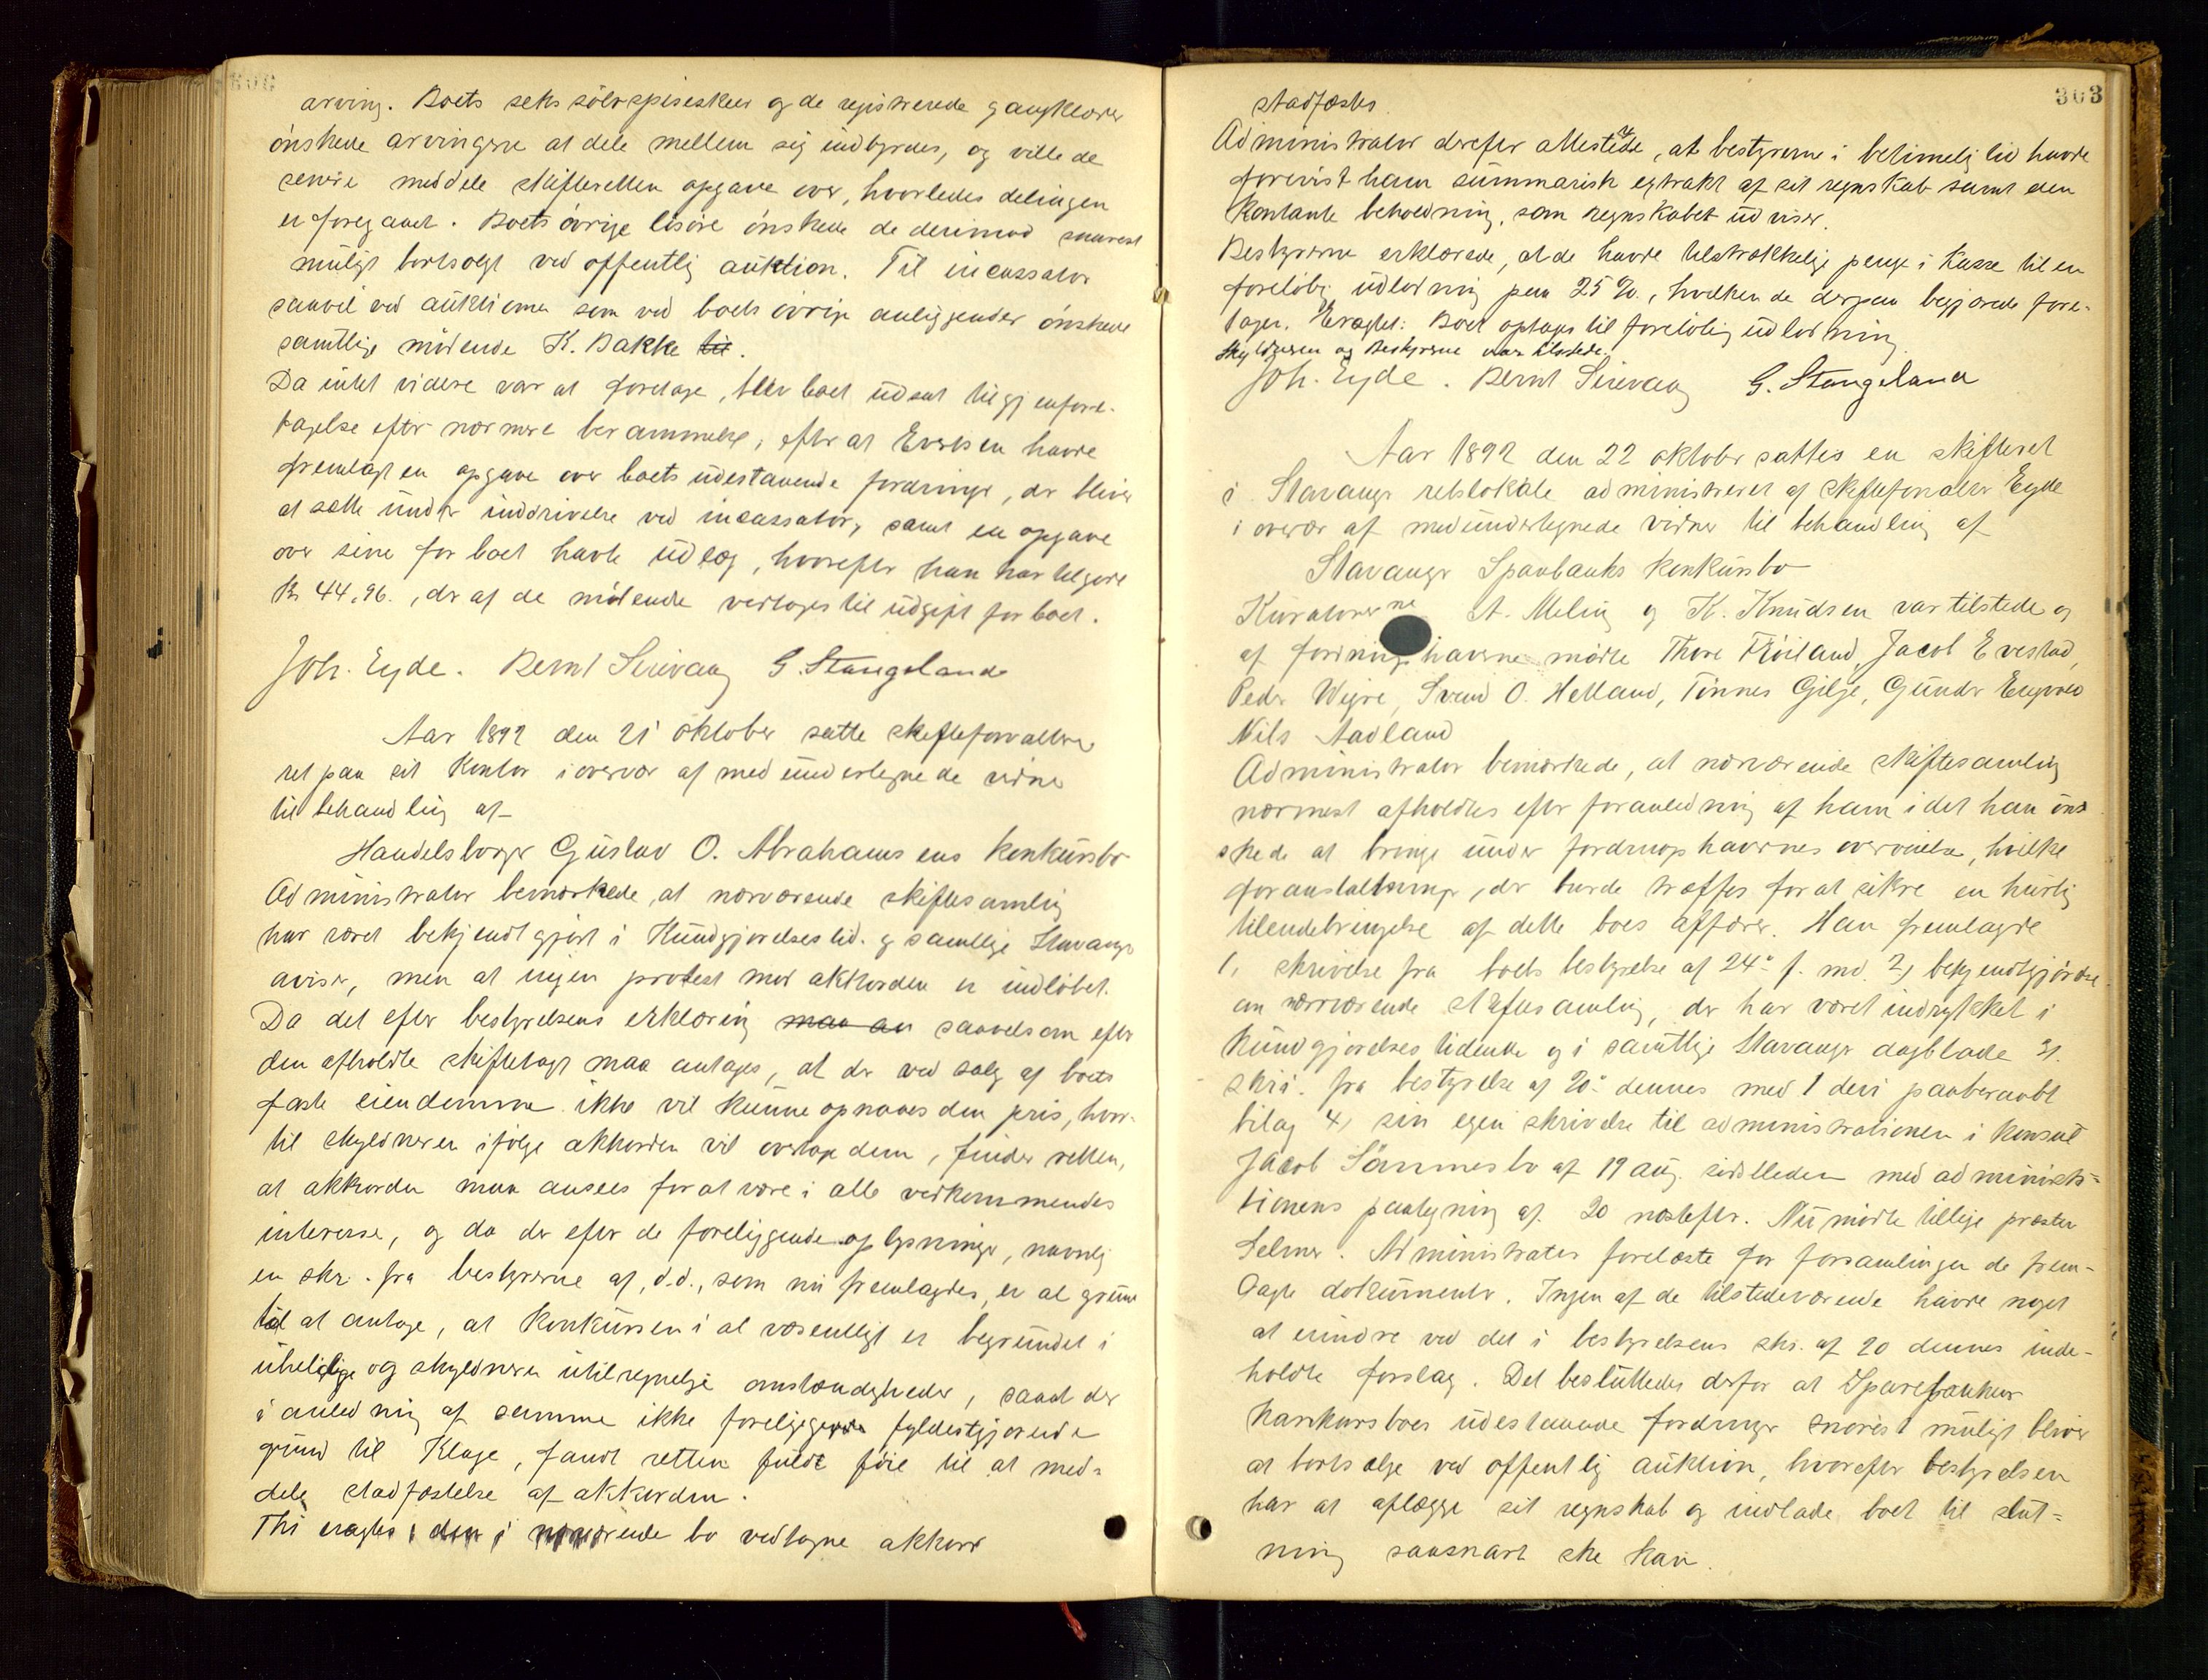 arving. Boets seks sölvspiseskeer og de registrerede gangklæder
önskede arvingerne at dele mellem sig indbyrdes, og ville de
senere meddele skifteretten opgave over, hvorledes delingen
er foregaaet. Boets övrige lösöre önskede de derimod snarest
muligt bortsolgt ved offentlig auktion. Til incassator
saavel ved auktionen som ved boets övrige anliggender önskede
samtlige mödende K. Bakke til.
Da intet videre var at foretage, blev boet udsat til gjenfore-
tagelse efter nærmere berammelse, efter at Evertsen havde
fremlagt en opgave over boets udestaaende fordringer, der bliver
at sætte under inddrivelse ved incassator, samt en opgave
over sine for boet havte udlæg, hvorefter han har tilgode
Kr 44,96., der af de mödende vedtoges til udgift for boet.
Joh. Eyde. Bernt Sirevaag G. Stangeland
Aar 1892 den 21 oktober satte skifteforvalteren
ret paa sit Kontor i overvær af medundertegnede vidner
til behandling af
Handelsborger Gustav O. Abrahamsens konkursbo
Administrator bemærkede, at nærværende skiftesamling
har været bekjendtgjort i Kundgjörelsestid. og samtlige Stavanger
aviser, men at ingen protest mod akkorden er indlöbet.
Da det efter bestyrelsens erklæring maa an saavelsom efter
den afholdte skiftetaxt maa antages, at der ved salg af boets
faste eiendomme ikke vil kunne opnaaes den pris, hvor-
til skyldneren ifölge akkorden vil overtage dem, finder retten,
at akkorden maa ansees for at være i alle vedkommendes
interesse, og da der efter de foreliggende oplysninger, navnlig
en skr. fra bestyrerne af, d.d., som nu fremlagdes, er al grund
til at antage, at Konkursen i al væsentligt er begrundet i
uheldige og skyldneren utilregnelige omstændigheder, samt der
i anledning af samme ikke foreligger fyldestgjörende
grund til Klage, fandt retten fuld föie til at med-
dele stadfæstelse af akkorden.
Thi eragtes: den i nærværende bo vedtagne akkord
303
stadfæstes.
Administrator derefter attesterede, at bestyrerne i betimelig tid havde
forevist ham summarisk extrakt af sit regnskab samt den
Kontante beholdning, som regnskabet udviser.
Bestyrerne erklærede, at de havde tilstrækkelige penge i Kasse til en
foreløbig udlodning paa 25 %, hvilken de derpaa begjærede fore-
tagen. Eragtet: Boet optages til forelöbig udlodning.
Skyldneren og Bestyrerne var tilstede.
Joh. Eyde. Bernt Sirevaag G. Stangeland
Aar 1892 den 22 oktober sattes en skifteret
i Stavanger retslokale administreret af skifteforvalter Eyde
i overvær af medundertegnede vidner til behandling af
Stavanger Sparebanks konkursbo
Kuratorerne A. Meling og K. Knudsen var tilstede og
af fordringshaverne mödte Thore Fröiland, Jacob Evestad,
Peder Wejre, Svend O. Helland, Tönnes Gilje, Gunder
Nils Aadland
Administrator bemærkede, at nærværende skiftesamling
nærmest afholdtes efter foranledning af ham idet han öns
skede at bringe under fordringshavernes overveielse, hvilke
foranstaltninger, der burde træffes for at sikre en hurtig
tilendebringelse af dette boes affærer. Han fremlagde
1, skrivelse fra boets bestyrelse af 24de f. md. 2, bekjendtgjörelse
om nærværende skiftesamling, der har været indrykket i
Kundgjörelsestidende og i samtlige Stavanger dagblade 3,
skri. fra bestyrelse af 20de dennes med 1 deri paaberaabt
bilag 4, sin egen skrivelse til administrationen i Konsul
Jacob Sömmes bo af 19 aug. sidstleden med administra-
tionens paategning af 20 næstefter. Nu mödte tillige præsten
Selmer. Administrator forelæste for forsamlingen de frem-
lagte dokumenter. Ingen af de tilstedeværende havde noget
at erindre ved det i bestyrelsens skr. af 20 dennes inde-
holdte forslag. Det besluttedes derfor at Sparebankens
Konkursboes udestaaende fordringer snarest muligt bliver
at bortsælge ved offentlig auktion, hvorefter bestyrelsen
har at aflægge sit regnskab og indlade boet til slut-
ning saasnart ske kan.